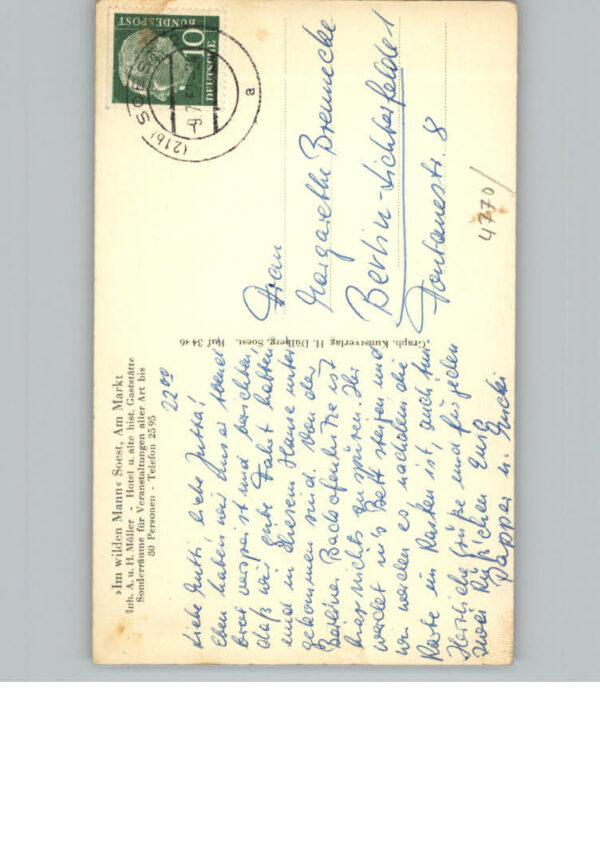 »Im wilden Mann« Soest, Am Markt
Inh. A. u. H. Möller - Hotel u. alte hist. Gaststätte
Sonderräume für Veranstaltungen aller Art bis
80 Personen - Telefon 2595
22.00
Liebe Mutti, liebe Jutta!
Eben haben wir unser Abend
brot verspeist und berichten,
daß wir gute Fahrt hatten
und in diesem Hause unter
gekommen sind. Von der
Berliner Backofenhitze ist
hier nichts zu spüren. Ihr
werdet ins Bett steigen und
wir werden es, nachdem die
Karte im Kasten ist, auch tun.
Herzliche Grüße und für jeden
zwei Küßchen Eure
Pappi u.
Graph. Kunstverlag H. Dülberg, Soest. Ruf 34 46
DEUTSCHE
BUNDESPOST
10
(21b) SOEST
a
Frau
Margarethe Brennecke
Berlin-Lichterfelde 1
Fontanestr. 8
4770/